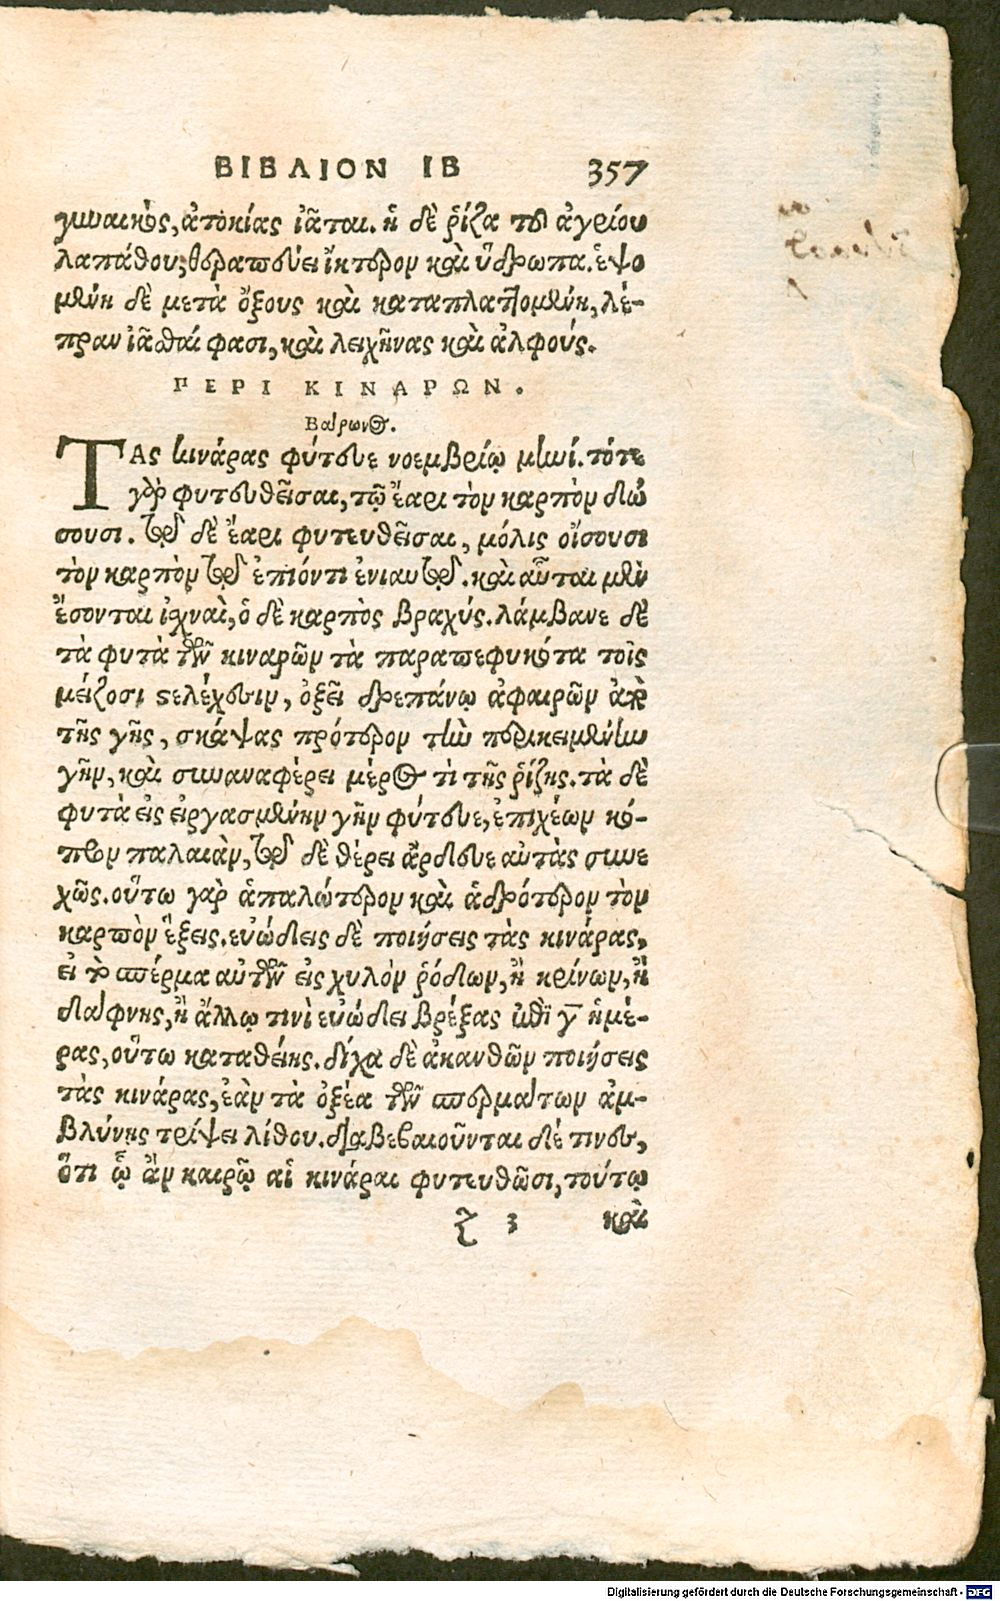 ΒΙΒΛΙΟΝ ΙΒ 357
γυναικὸς, ἀτοκίας ἰᾶται. ἡ δὲ ῥίζα τοῦ ἀγρίου
λαπάθου, θεραπεύει ἴκτερον καὶ ὕδρωπα. ἑψο
μένη δὲ μετὰ ὄξους καὶ καταπλαττομένη, λέ-
πραν ἰᾶσθαί φασι, καὶ λειχῆνας καὶ ἀλφούς.
ΠΕΡΙ ΚΙΝΑΡΩΝ.
Βάρωνος.
ΤΑς κινάρας φύτευε νοεμβρίῳ μηνί. τότε
γὰρ φυτευθεῖσαι, τῷ ἔαρι τὸν καρπὸν δώ
σουσι. τῷ δὲ ἔαρι φυτευθεῖσαι, μόλις οἴσουσι
τὸν καρπὸν τῷ ἐπιόντι ἐνιαυτῷ. καὶ αὗται μὲν
ἔσονται ἰχναὶ, ὁ δὲ καρπὸς βραχύς. λάμβανε δὲ
τὰ φυτὰ τῶν κιναρῶν τὰ παραπεφυκότα τοῖς
μείζοσι στελέχεσιν, ὀξεῖ δρεπάνῳ ἀφαιρῶν ἀπὸ
τῆς γῆς, σκάψας πρότερον τὴν περικειμένην
γῆν, καὶ συναναφέρει μέρος τὶ τῆς ῥίζης. τὰ δὲ
φυτὰ εἰς εἰργασμένην γῆν φύτευε, ἐπιχέων κό-
προν παλαιὰν, τῷ δὲ θέρει ἄρδευε αὐτὰς συνε
χῶς. οὕτω γὰρ ἁπαλώτερον καὶ ἁδρότερον τὸν
καρπὸν ἕξεις. εὐώδεις δὲ ποιήσεις τὰς κινάρας,
εἰ τὸ σπέρμα αὐτῶν εἰς χυλὸν ῥόδων, ἢ κρίνων, ἢ
δάφνης, ἢ ἄλλῳ τινὶ εὐώδει βρέξας ἐπὶ γ̄ ἡμέ-
ρας, οὕτω καταθείης. δίχα δὲ ἀκανθῶν ποιήσεις
τὰς κινάρας, ἐὰν τὰ ὀξέα τῶν σπερμάτων ἀμ-
βλύνῃς τρίψει λίθου. διαβεβαιοῦνται δέ τινες,
ὅτι ᾧ ἂν καιρῷ αἱ κινάραι φυτευθῶσι, τούτῳ
ζ 3 καὶ
Digitalisierung gefördert durch die Deutsche Forschungsgemeinschaft - DFG